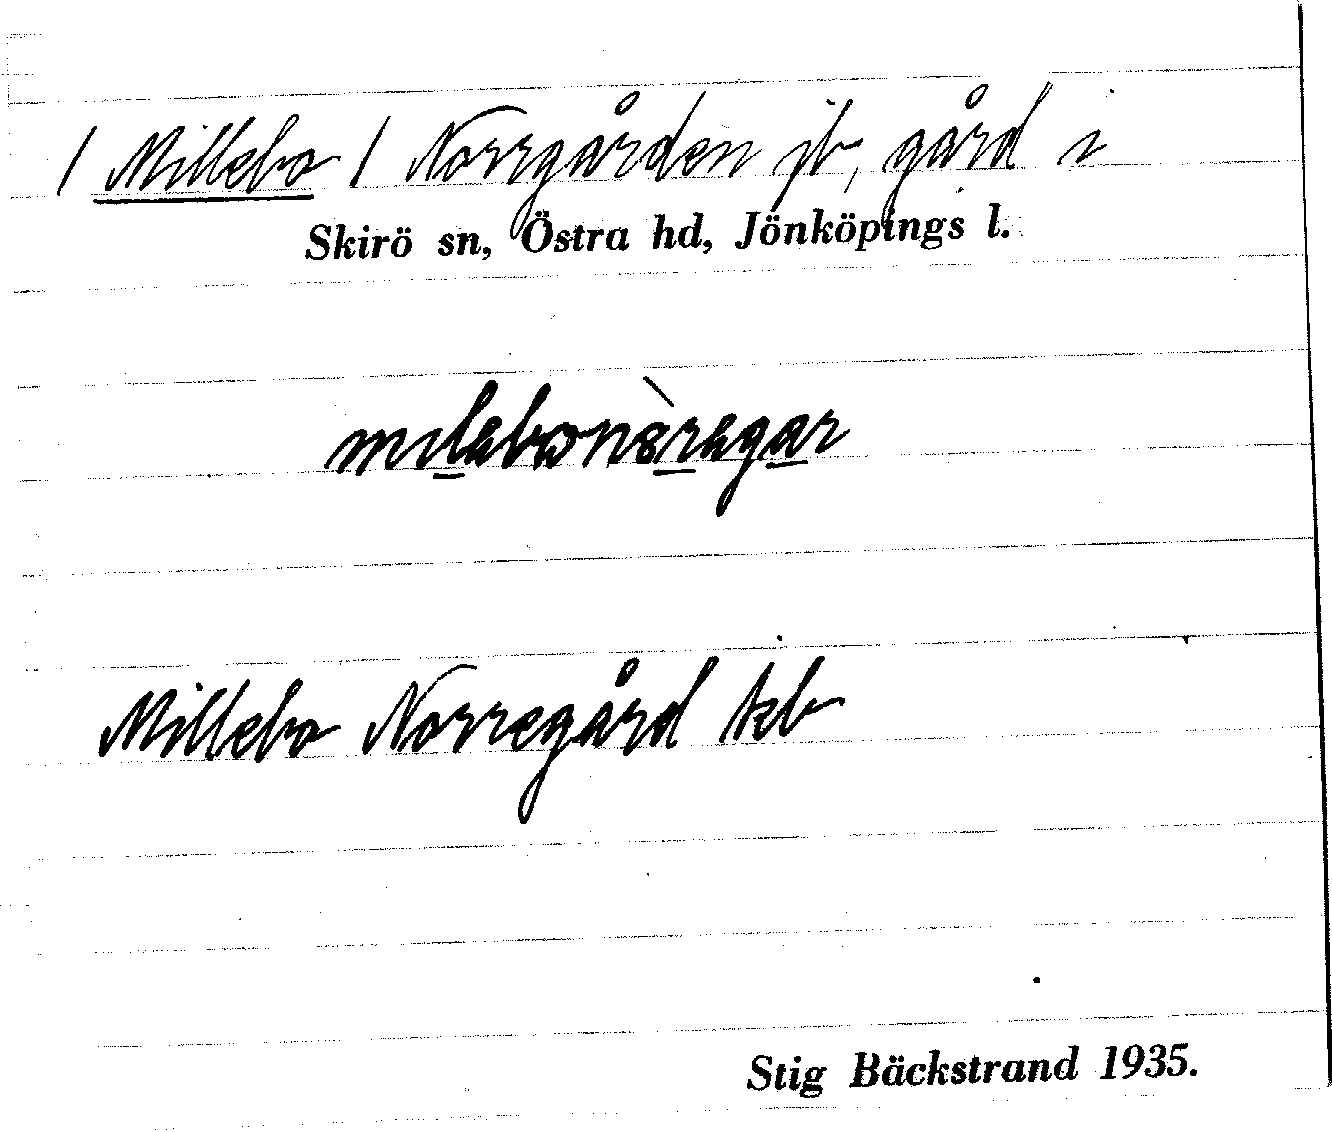 / Millebo / Norrgården jb, gård i
Skirö sn, Östra hd, Jönköpings l.
Millebo Norregård tkb
Stig Bäckstrand 1935.